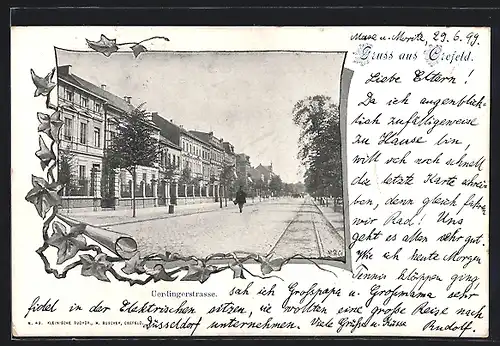 Muse u. Moritz, 29.6.99.
Gruss aus Crefeld.
Liebe Eltern!
Da ich augenblick-
lich zufälligerweise
zu Hause bin,
will ich noch schnell
die letzte Karte schrei-
ben, denn gleich fahren
wir Rad! Uns
geht es allen sehr gut.
Wie ich heute Morgen
Tennis kloppen ging,
Uerdingerstrasse.
sah ich Grosspapa u. Grossmama sehr
fidel in der Elektrischen sitzen, sie wollten eine große Reise nach
Düsseldorf unternehmen. Viele Grüße u. Küsse
Rudolf.
KLEINSCHE BUCHDR., M. BUSCHER, CREFELD.